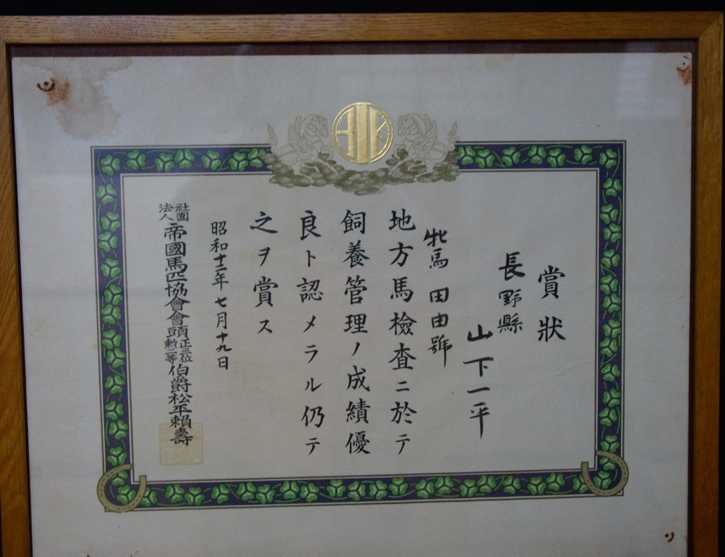 賞狀
長野縣
山下一平
牝馬 田由號
地方馬檢査ニ於テ
飼養管理ノ成績優
良ト認メラル仍テ
之ヲ賞ス
昭和十二年七月十九日
社團法人帝國馬匹協會會頭正三位勲二等伯爵松平賴壽